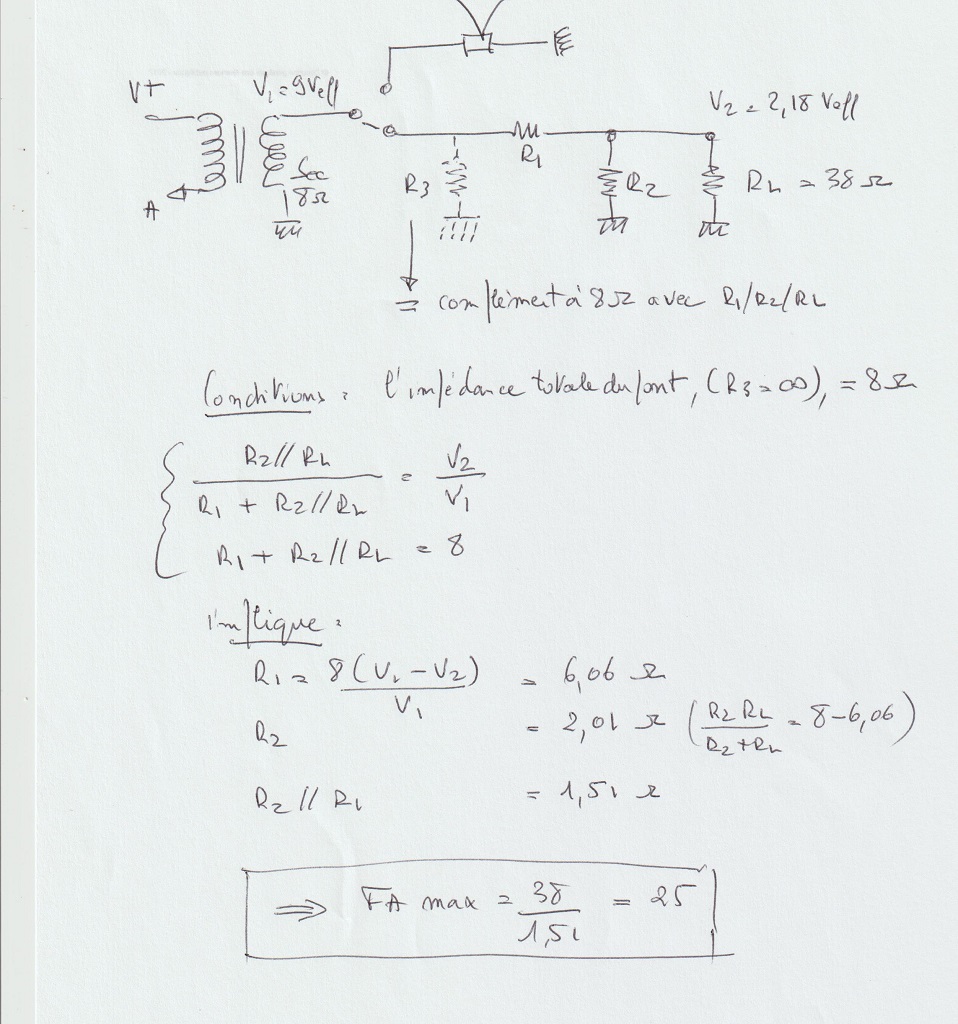 V+
V1 = 9Veff
V2 = 2,18 Veff
A
Sec
8Ω
R3
R1
R2
RL = 38 Ω
= complément à 8Ω avec R1/R2/RL
Conditions : l'impédance totale du pont, (R3 = ∞), = 8Ω
R2//RL / R1 + R2//RL = V2 / V1
R1 + R2//RL = 8
implique :
R1 = 8(V1 - V2) / V1 = 6,06 Ω
R2 = 2,01 Ω (R2 RL / R2+RL = 8-6,06)
R2 // R1 = 1,51 Ω
⇒ FA max = 38 / 1,51 = 25